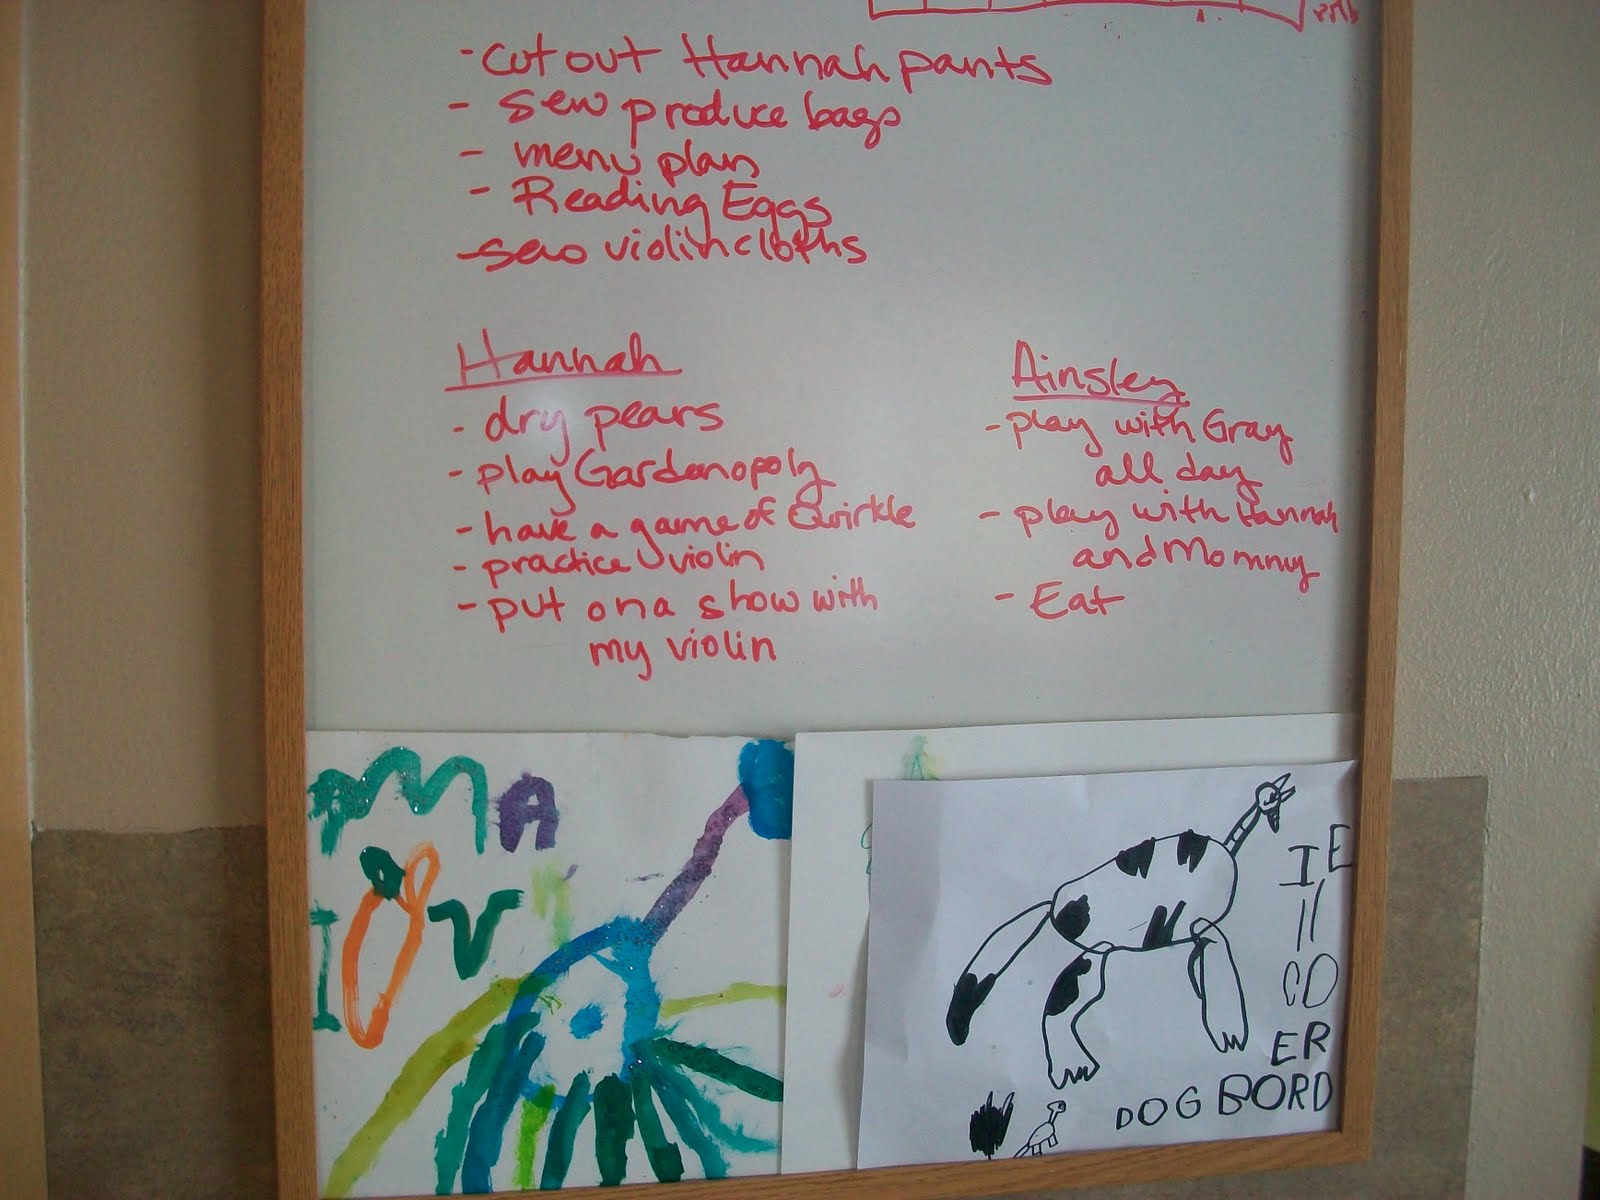 - cut out Hannah pants
- sew produce bags
- menu plan
- Reading Eggs
- sew violin cloths
Hannah
- dry pears
- play Gardenopoly
- have a game of Qwirkle
- practice violin
- put on a show with
my violin
Ainsley
- play with Gray
all day
- play with Hannah
and Mommy
- Eat
MA
I
V
IE
ER
DOG BORD